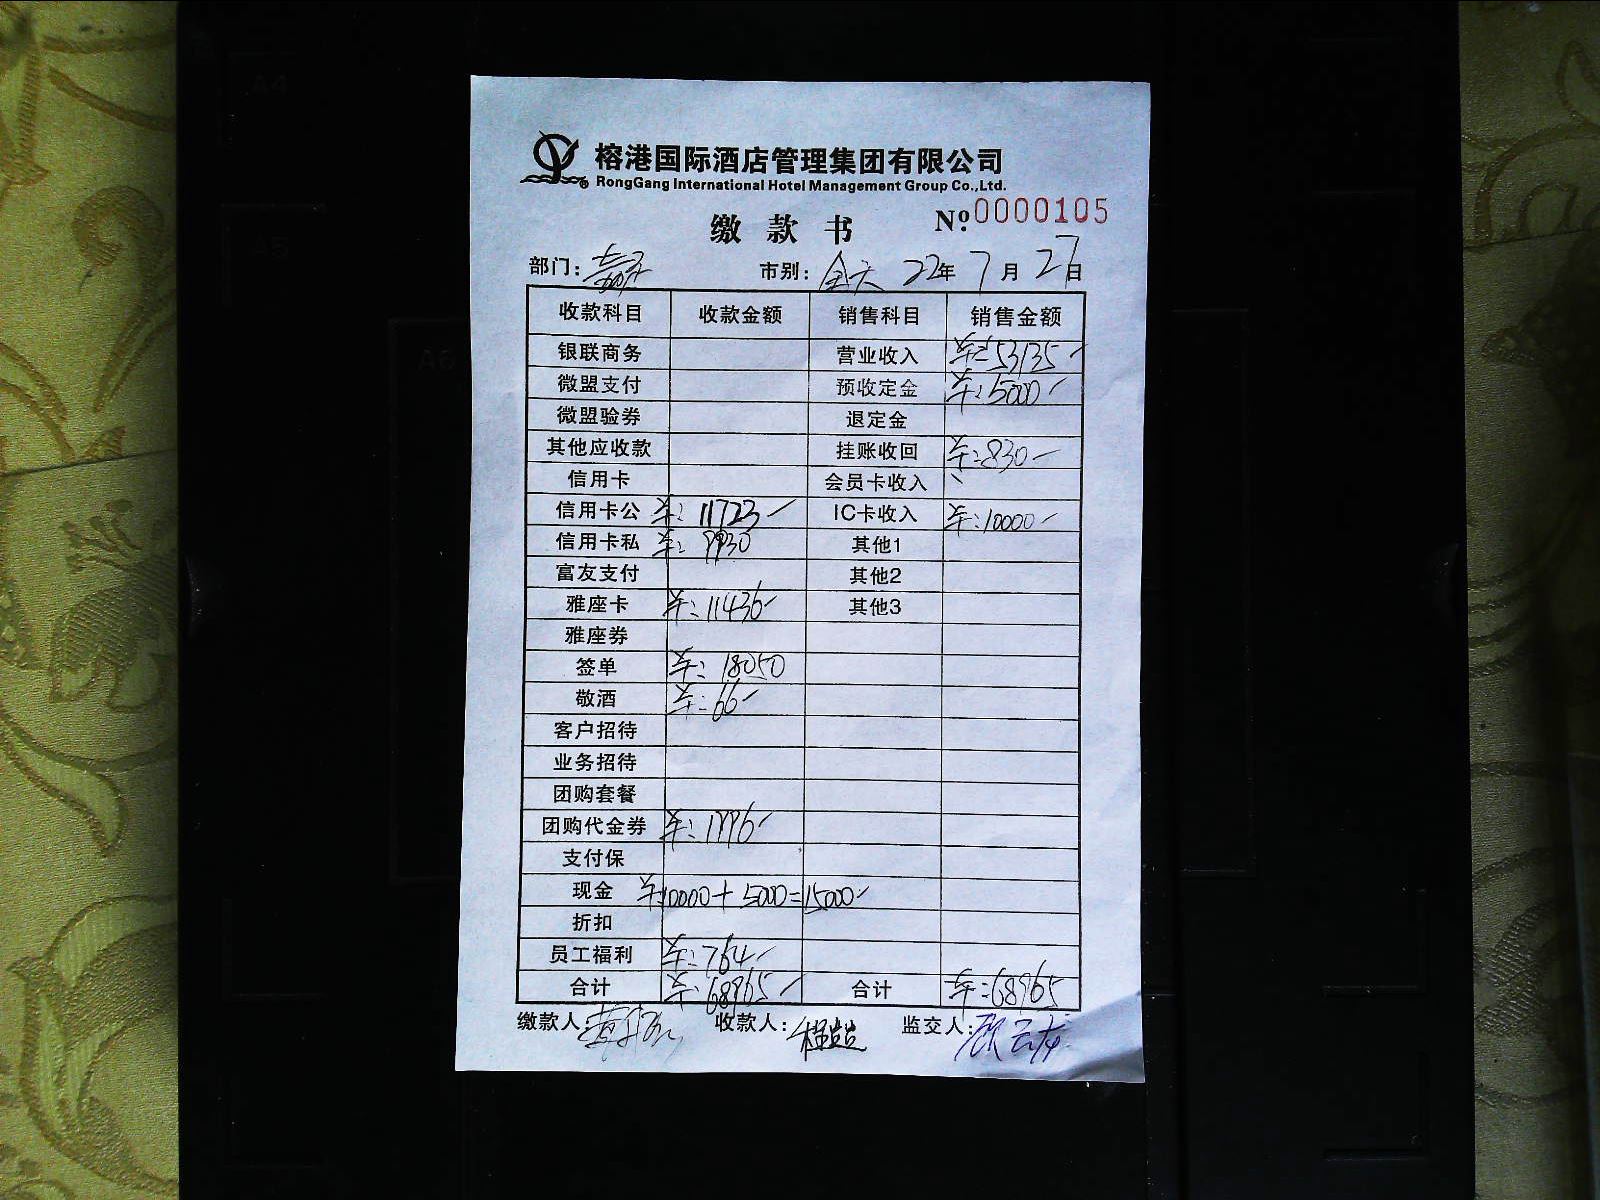 榕港国际酒店管理集团有限公司
RongGang International Hotel Management Group Co.,Ltd.
缴款书 Nº 0000105
部门: 市别: 全天 22年 7月 27日
收款科目 收款金额 销售科目 销售金额
银联商务 营业收入 ¥:53135
微盟支付 预收定金 ¥:5000
微盟验券 退定金
其他应收款 挂账收回 ¥:830
信用卡 会员卡收入
信用卡公 ¥:11723 IC卡收入 ¥:10000
信用卡私 ¥:9930 其他1
富友支付 其他2
雅座卡 ¥:11436 其他3
雅座券
签单 ¥:18050
敬酒 ¥:66
客户招待
业务招待
团购套餐
团购代金券 ¥:1996
支付保
现金 ¥10000+5000=15000
折扣
员工福利 ¥:764
合计 ¥:68965 合计 ¥:68965
缴款人: 收款人: 监交人:
A4
A5
A6